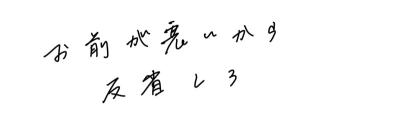 お前が悪いから
反省しろ